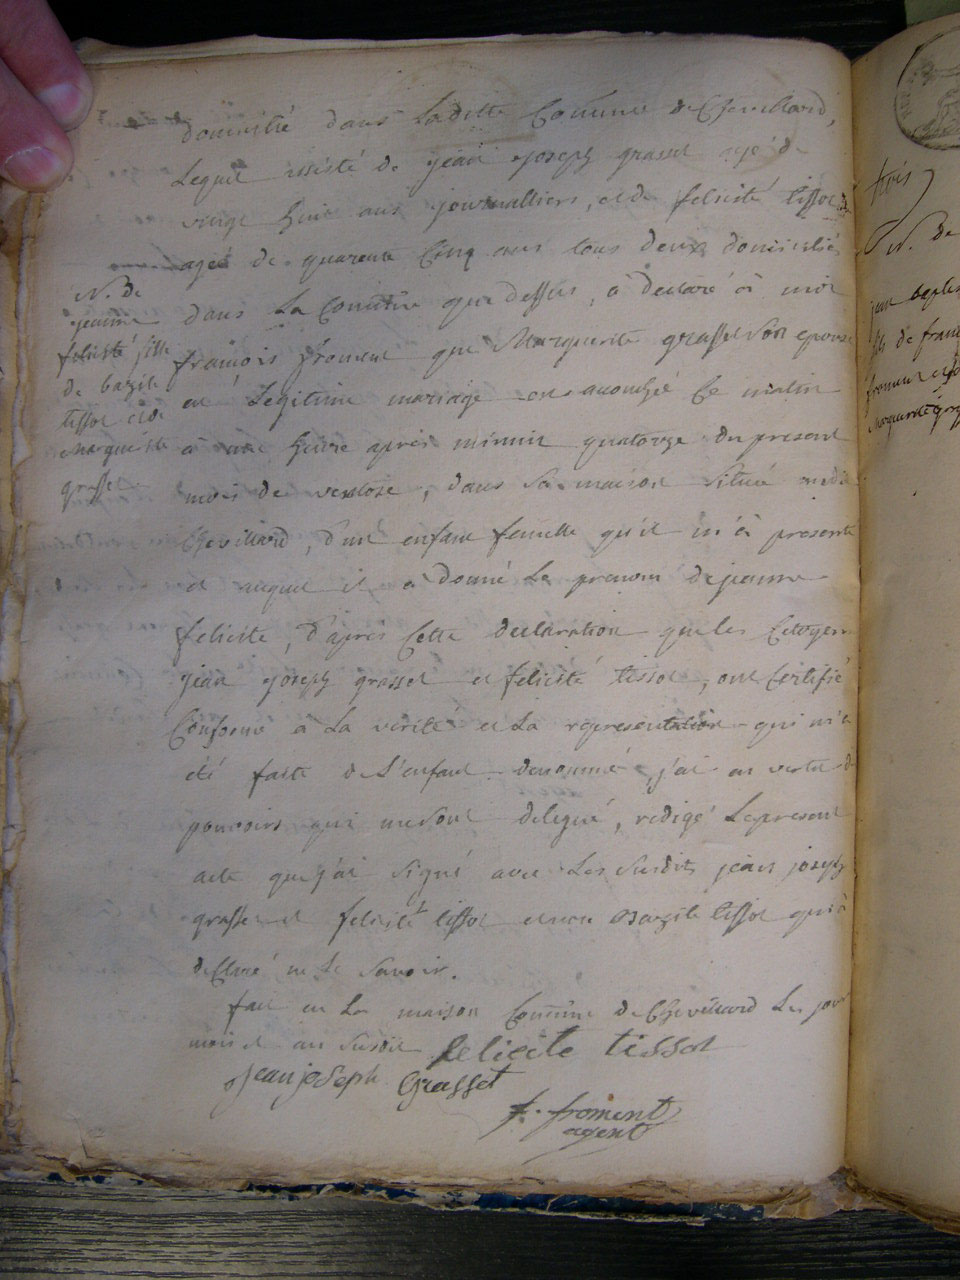 domicilié dans Laditte Commune de Chevillard,
Lequel assisté de jean joseph grasset agé de
vingt huit ans journalliers, et de felicité tissot
agé de quarente Cinq ans tous deux domiciliés
dans La Commune que dessus, a declaré à moi
françois froment que Marguerite grasset son epouse
en Legitime mariage est accouchée Ce matin
à une heure après minuit quatorze du present
mois de ventose, dans sa maison située audit
Chevillard, d'un enfant femelle qu'il m'à presenté
et auquel il a donné Le prenom de jeanne
felicité, d'après Cette declaration que les Citoyens
jean joseph grasset et felicité tissot, ont Certifié
Conforme à La verité et La representation qui m'a
été faite de L'enfant denommé, j'ai en vertu des
pouvoirs qui me sont delegué, redigé Le present
acte que j'ai signé avec Les susdits jean joseph
grasset et felicité tissot et non bazile tissot qui à
declaré ne Le savoir.
fait en La maison Commune de Chevillard Les jour
mois et an susdit
felicite tissot
Jean joseph Grasset
f. froment
agent
N. de
jeanne
felicité fille
de bazile
tissot et de
Marguerite
grasset
N. de
jean baptiste
fils de fran
froment et de
Marguerite